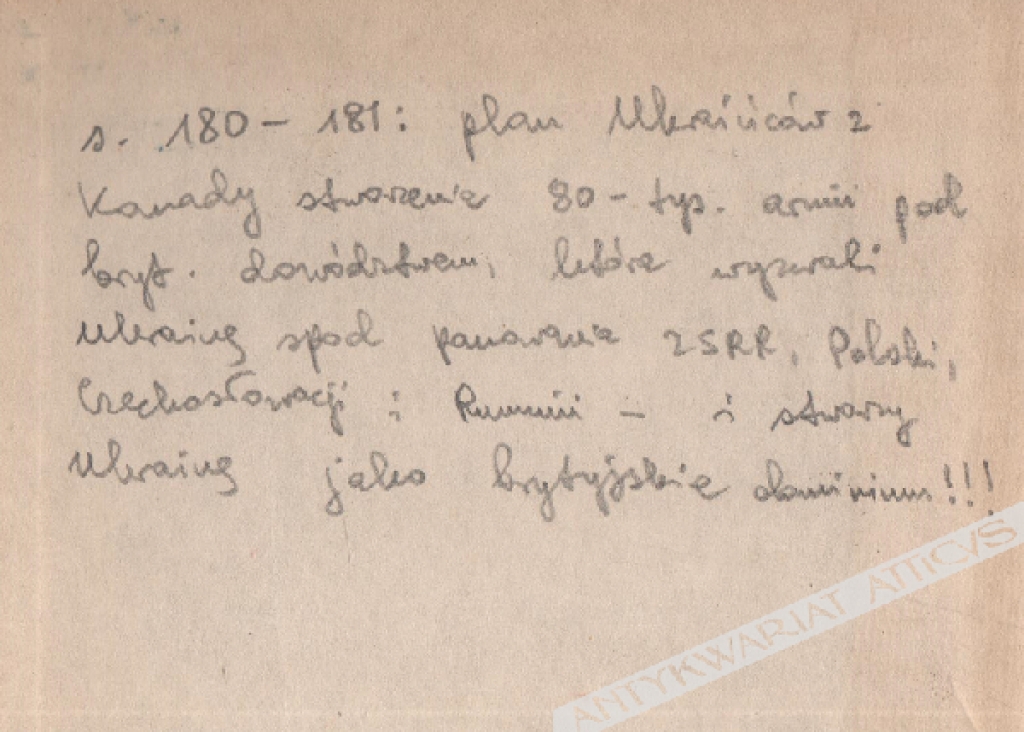 s. 180 – 181: plan Ukraińców z
Kanady stworzenia 80 – tys. armii pod
bryt. dowództwem, która wyzwoli
Ukrainę spod panowania ZSRR, Polski,
Czechosłowacji i Rumunii – i stworzy
Ukrainę jako brytyjskie dominium!!!
ANTYKWARIAT ATTICVS